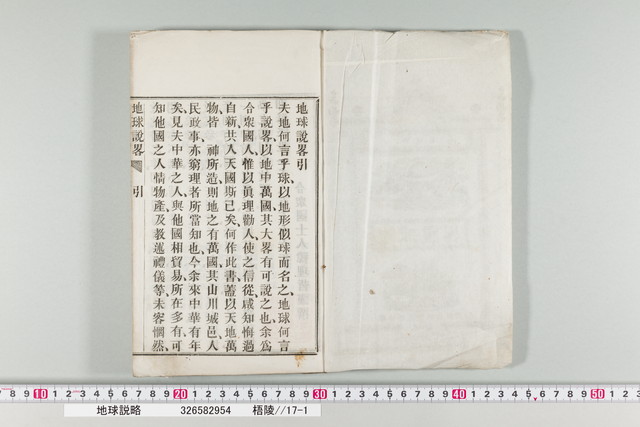 地球說畧引
夫地何言乎球、以地形似球而名之、地球何言
乎說畧、以地中萬國其大畧有可說之也、余爲
合衆國人、惟以眞理勸人、使之信從、咸知悔過
自新、共入天國斯已矣、何作此書、蓋以天地萬
物、皆　神所造、則地之有萬國、其山川城邑、人
民政事、亦窮理者所當知也、今余來中華有年
矣、見夫中華之人、與他國相貿易、所在多有、可
知他國之人情物產、及教道禮儀等、未容惘然、
地球說畧　引
7 8 9 10 1 2 3 4 5 6 7 8 9 20 1 2 3 4 5 6 7 8 9 30 1 2 3 4 5 6 7 8 9 40 1 2 3 4 5 6 7 8 9 50 1 2
地球説略　326582954　梧陵//17-1